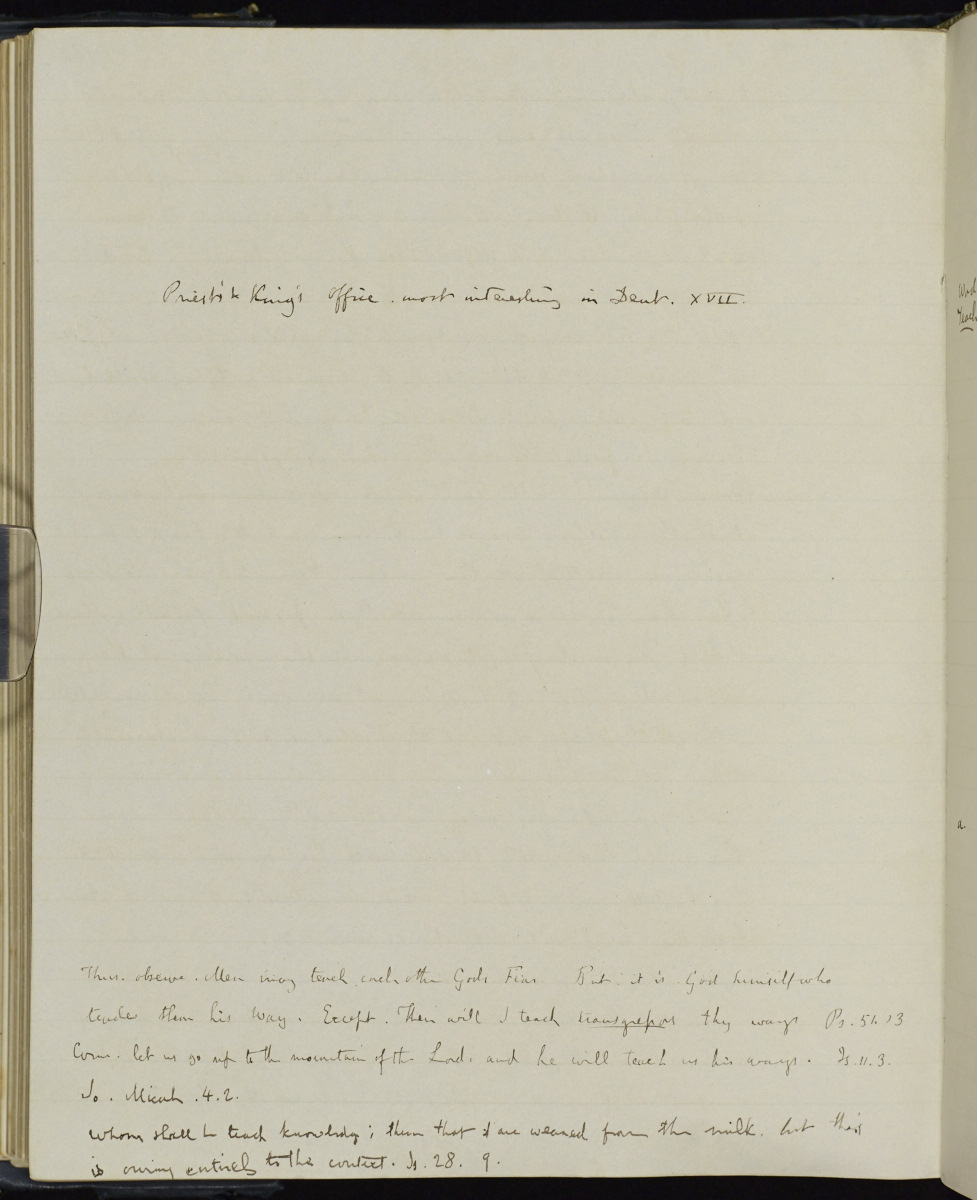 Priest's & King's office. most interesting in Deut. XVII.
Word
Teach
a.
Thus. observe. Men may teach each other Gods Fear But it is God himself who
teaches them his Way. Except. Then will I teach transgressors thy ways Ps. 51. 13
Come. let us go up to the mountain of the Lord. and he will teach us his ways. Is. 11. 3.
So. Micah. 4. 2.
Whom shall he teach knowledge; them that are weaned from the milk. but this
is owing entirely to the context. Is. 28. 9.